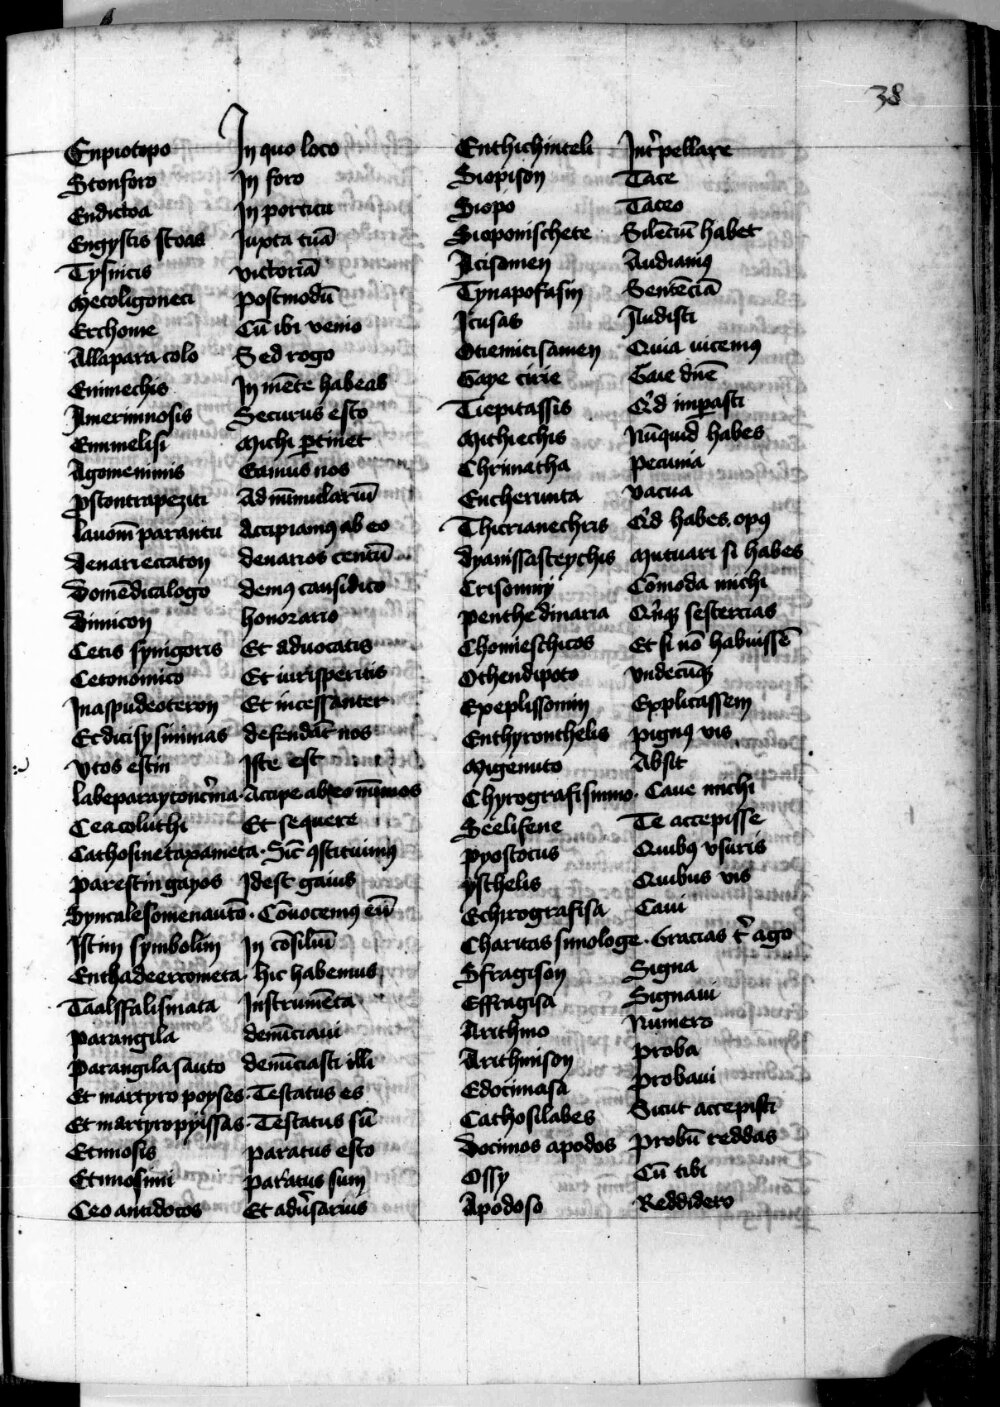 38
Enpiotopo In quo loco
Stonforo In foro
Endictoa In porticu
Engystis stoas Iuxta tuā
Tysnicis victoriā
Mecoligoneci postmodū
Erchome Cū ibi venio
Allapara colo Sed rogo
Enimechis In mēte habeas
Amerimnosis Securus esto
Emmelisi Michi ptinet
Agomenimis Eamus nos
pstontrapeziti Ad mūmulariū
lauom parantu Accipiamꝰ ab eo
Denarieccaton denarios centū
Domēdicalogo demꝰ causidico
Dimicon honorario
Cetis synigoris Et aduocatis
Cetonomico Et iurisperitis
Inaspudeoteron Et incessanter
Ecdicisysimmas defendāt nos
Vtos estin Iste est
labeparaytoncīma · Accipe ab eo nūmos
Ceacoluthi Et sequere
Cathosinetaxameta · Sic ꝯstituimꝰ
parestin gayos Idest gaius
Syncalesomenautō · Cōuocemꝰ eū
Istim symbolim In cōsiliū
Enthadeerrometa · hic habemus
Taalsffalismata Instrumēta
parangila denūciaui
parangila sauto denūciasti illi
Et martyro poyses · Testatus es
Et martyropyissas · Testatus sū
Etimosis paratus esto
Etimosimi paratus sum
Ceo antidocos Et aduersarius
Enthichinteli Int'pellare
Siopison Tace
Siopo Taceo
Sioponischete Silēciū habet
Acisomen Audiamꝰ
Tynapofasin Sentēciā
Icusas Audisti
Otiemicisamen Quia uicemꝰ
Gaye cirie Gaie dn̄e
Tiepitassis Qd imperasti
Mithiechis Nūquid habes
Chrimatha pecunia
Encherunta vacua
Thicrianechris Qd habes opꝰ
Dyanissasteychis mutuari si habes
Crisonmy Cōmoda michi
penthe dinaria Quinqꝫ sestercias
Chomeschicos Et si nō habuissē
Othendipoto vndecūqꝫ
Expeplissomin Explicassem
Enthyronthelis pignꝰ vis
Migenuto Absit
Chyrografisimmo · Caue michi
Seelifene Te accepisse
pyostocus Quibꝰ vsuris
ysthelis Quibus vis
Echirografisa Caui
Charitas simologe · Gracias t' ago
Sfragison Signa
Effragisa Signaui
Arithmo Numero
Arithmison proba
Edocimasa probaui
Cathosilabes Sicut accepisti
Docimos apodos probū reddas
Ossy Cū tibi
Apodoso Reddidero